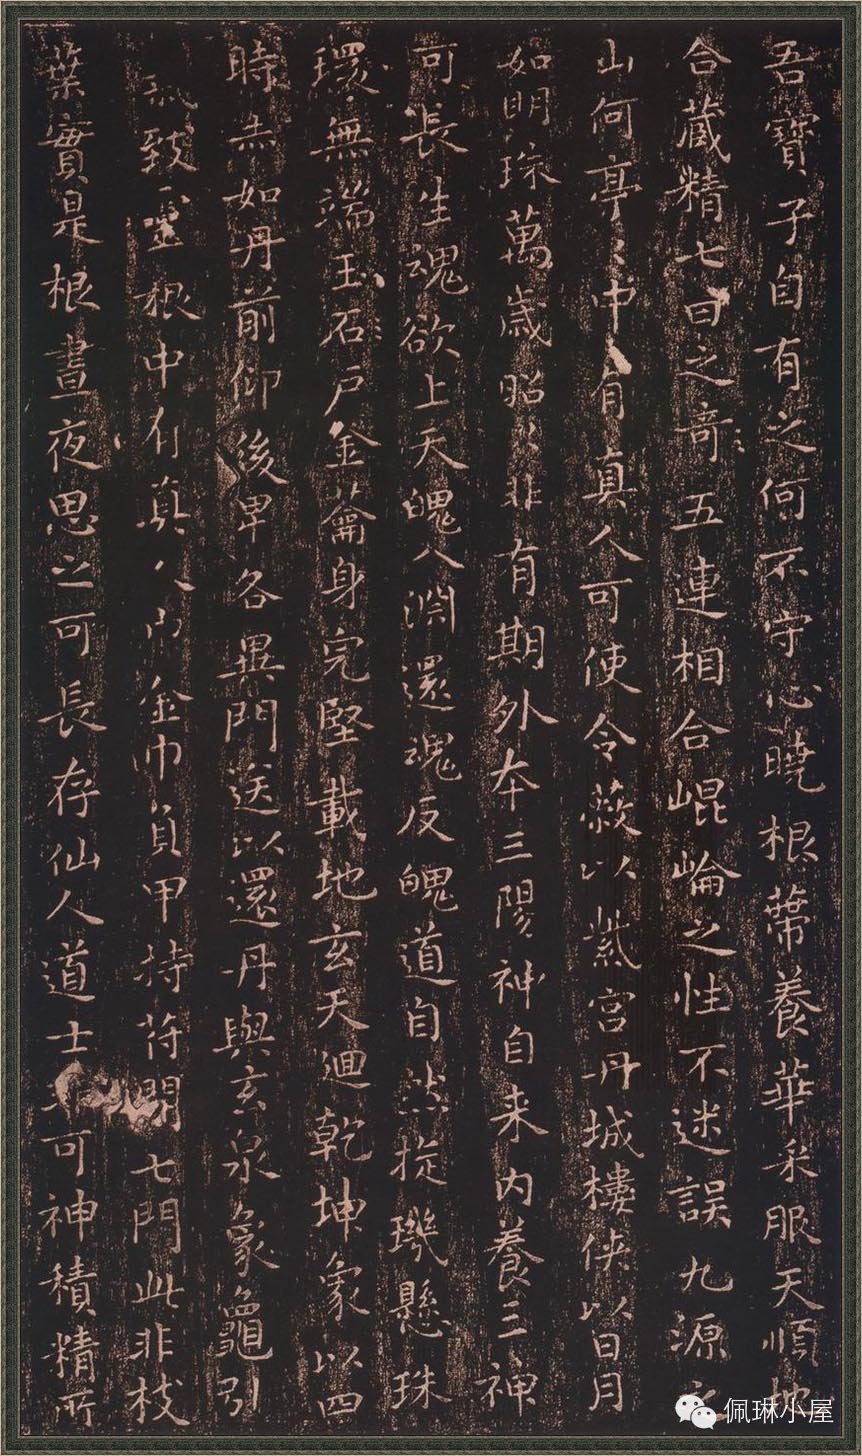 吾寶子自有之何不守心曉根蔕養華采服天順地
合藏精七日之奇五連相合崐崘之性不迷誤九源之
山何亭〻中有真人可使令蔽以紫宮丹城樓俠以日月
如明珠萬歲昭〻非有期外本三陽神自来內養三神
可長生魂欲上天魄入淵還魂反魄道自然挻璣懸珠
環無端玉石戶金蘥身完堅載地玄天迴乾坤象以四
時赤如丹前仰後卑各異門送以還丹與玄泉象龜引
氣致靈根中有真人巾金巾負甲持苻開七門此非枝
葉實是根晝夜思之可長存仙人道士非可神積精所
佩琳小屋